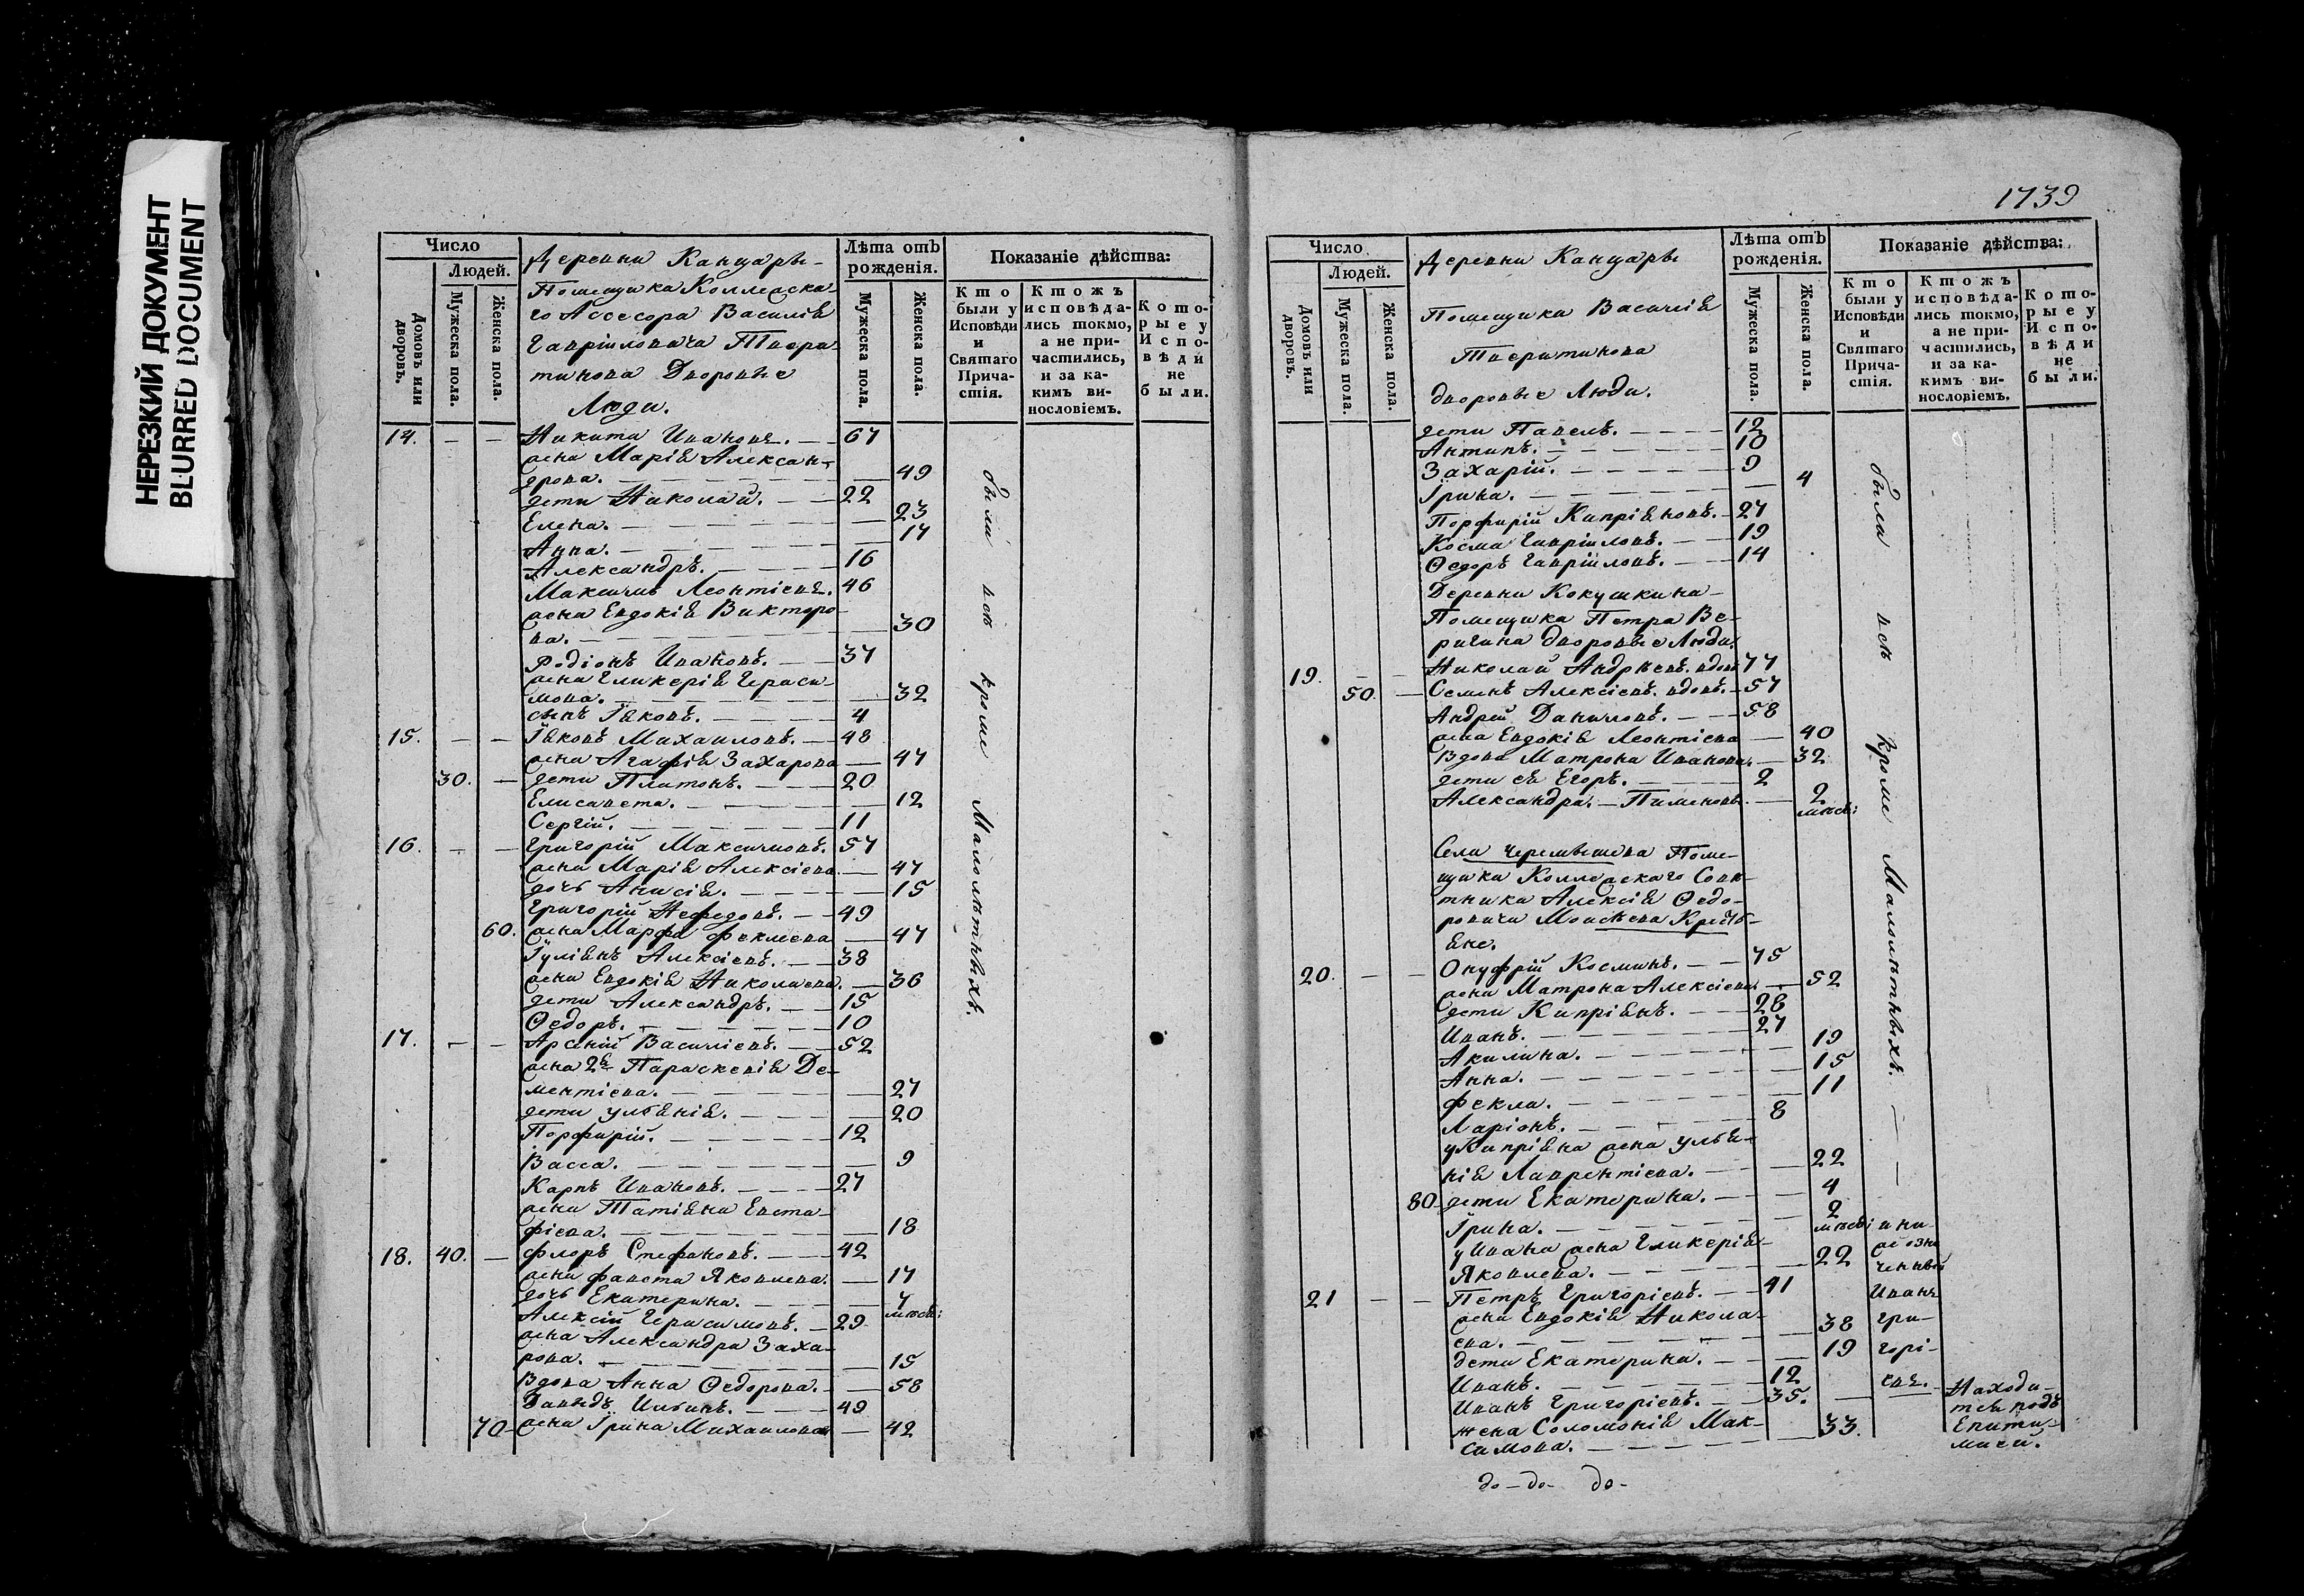 НЕРЕЗКИЙ ДОКУМЕНТ
BLURRED DOCUMENT
Число
Людей.
Домовъ или дворовъ.
Мужеска пола.
Женска пола.
Деревни Канцарь
Помещика Коллежска-
го Ассесора Василія
Гавріиловича Твери-
тинова Дворовые
Люди.
Лѣта отъ рожденія.
Мужеска пола.
Женска пола.
Показаніе дѣйства:
Кто были у Исповѣди и Святаго Причастія.
Ктожъ исповѣдались токмо, а не причастились, и за какимъ винословіемъ.
Которые у Исповѣди не были.
14. — — Никита Ивановъ. — — 67
жена Марія Алексан-
дрова. — 49
дети Николай. — — 22
Елена. — 23
Анна. — 17
Александръ. — 16
Максимъ Леонтіевъ. 46
жена Евдокія Викторо-
ва. — 30
Родіонъ Ивановъ. — — 37
жена Гликерія Гераси-
мова. — 32
сынъ Іяковъ. — 4
15. — — Іяковъ Михаиловъ. — 48
жена Агафія Захарова — 47
30. — дети Платонъ. — 20
Елисавета. — 12
Сергій. — 11
16. — — Григорій Максимовъ. 57
жена Марія Алексіева — 47
дочь Анисія. — 15
Григорій Нефедовъ. — 49
60. жена Марфа Феклиева — 47
Іуліянъ Алексіевъ. — 38
жена Евдокія Николаева. — 36
дети Александръ. — 15
Ѳедоръ. — 10
17. — — Арсеній Василіевъ. — 52
жена 2я Параскевія Де-
ментіева. — 27
дети Ульянія. — 20
Порфирій. — 12
Васса. — 9
Карпъ Ивановъ. — 27
жена Татіяна Евста-
фіева. — 18
18. 40. — Флоръ Стефановъ. — 42
жена Фавста Яковлева. — 17
дочь Екатерина. — 7 мѣсе:
Алексій Герасимовъ. — 29
жена Александра Заха-
рова. — 15
Вдова Анна Ѳедорова. — 58
Давыдъ Ильинъ. — 49
70 — жена Ірина Михаилова — 42
были всѣ кроме Малолѣтныхъ.
1739
Число
Людей.
Домовъ или дворовъ.
Мужеска пола.
Женска пола.
Деревни Канцарь
Помещика Василія
Тверитинова
дворовые Люди.
Лѣта отъ рожденія.
Мужеска пола.
Женска пола.
Показаніе дѣйства:
Кто были у Исповѣди и Святаго Причастія.
Ктожъ исповѣдались токмо, а не причастились, и за какимъ винословіемъ.
Которые у Исповѣди не были.
дети Павелъ. — 12
Антипъ. — 10
Захарій. — 9
Ірина. — 4
Порфирій Капріяновъ. — 27
Косма Гавріиловъ. — 19
Ѳедоръ Гавріиловъ. — 14
Деревни Кокушкина
Помещика Петра Ве-
ригина дворовые Люди.
19. — — Николай Андрѣевъ. вдов. 77
50. — Семенъ Алексіевъ. вдовъ. — 57
Андрей Даниловъ. — 58
жена Евдокія Леонтіева — 40
Вдова Матрона Иванова. — 32
дети ея Егоръ. — 2
Александра. — Пименовы. — 2 мѣсе:
Села Черемышева Поме-
щика Коллежскаго Сове-
тника Алексія Ѳедо-
ровича Моисѣева Кресть-
яне.
20. — — Онуфрій Косминъ. — 75
жена Матрона Алексіева — 52
дети Кипріянъ. — 28
Иванъ. — 27
Акилина. — 19
Анна. — 15
Фекла. — 11
Ларіонъ. — 8
у Кипріяна жена Улья-
нія Лаврентіева. — 22
80. дети Екатерина. — 4
Ірина. — 2 мѣсе:
у Ивана жена Гликерія
Яковлева. — 22
21 — — Петръ Григоріевъ. — 41
жена Евдокія Никола-
ева. — 38
дети Екатерина. — 19
Иванъ. — 12
Иванъ Григоріевъ. — 35.
жена Соломонія Мак-
симова. — 33.
были всѣ кроме Малолѣтныхъ.
и ни-
же озна
ченный
Иванъ
Гри-
горі-
евъ.
Находи-
тся подъ
Епити-
міей.
до — до — до —